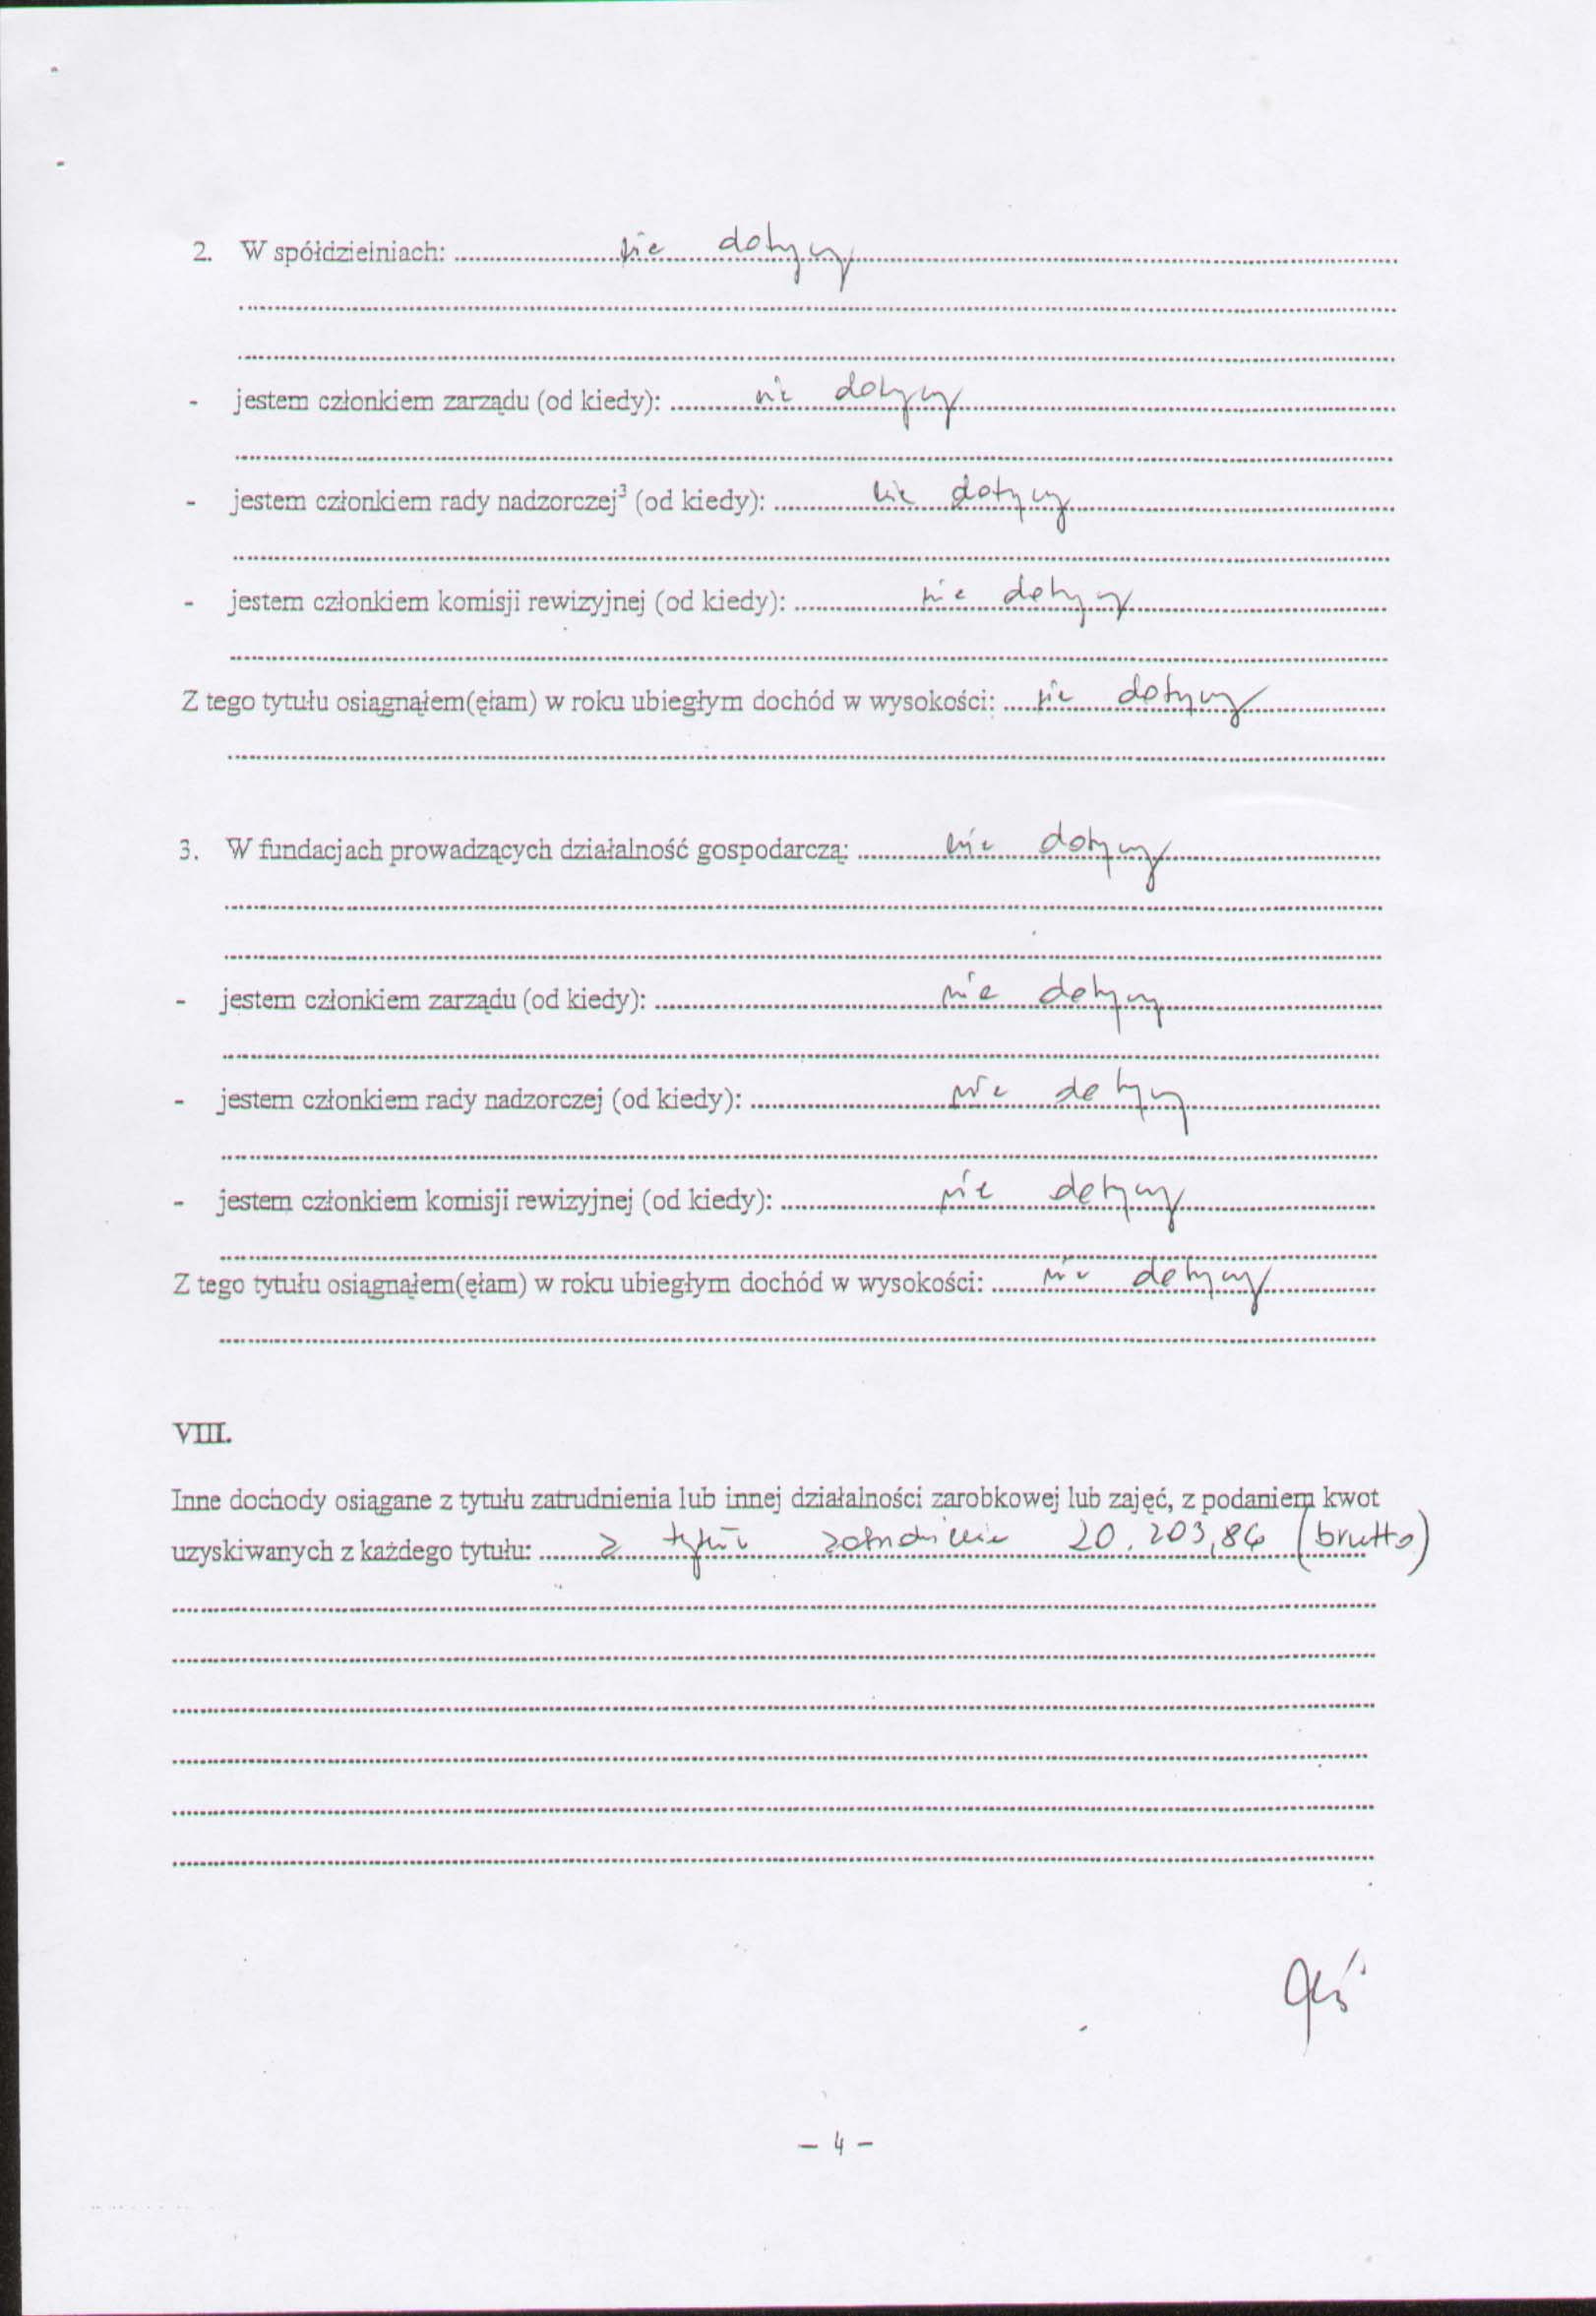 2. W spółdzielniach: nie dotyczy
- jestem członkiem zarządu (od kiedy): nie dotyczy
- jestem członkiem rady nadzorczej³ (od kiedy): nie dotyczy
- jestem członkiem komisji rewizyjnej (od kiedy): nie dotyczy
Z tego tytułu osiągnąłem(ęłam) w roku ubiegłym dochód w wysokości: nie dotyczy
3. W fundacjach prowadzących działalność gospodarczą: nie dotyczy
- jestem członkiem zarządu (od kiedy): nie dotyczy
- jestem członkiem rady nadzorczej (od kiedy): nie dotyczy
- jestem członkiem komisji rewizyjnej (od kiedy): nie dotyczy
Z tego tytułu osiągnąłem(ęłam) w roku ubiegłym dochód w wysokości: nie dotyczy
VIII.
Inne dochody osiągane z tytułu zatrudnienia lub innej działalności zarobkowej lub zajęć, z podaniem kwot
uzyskiwanych z każdego tytułu: z tytułu zatrudnienia 20.203,84 (brutto)
- 4 -